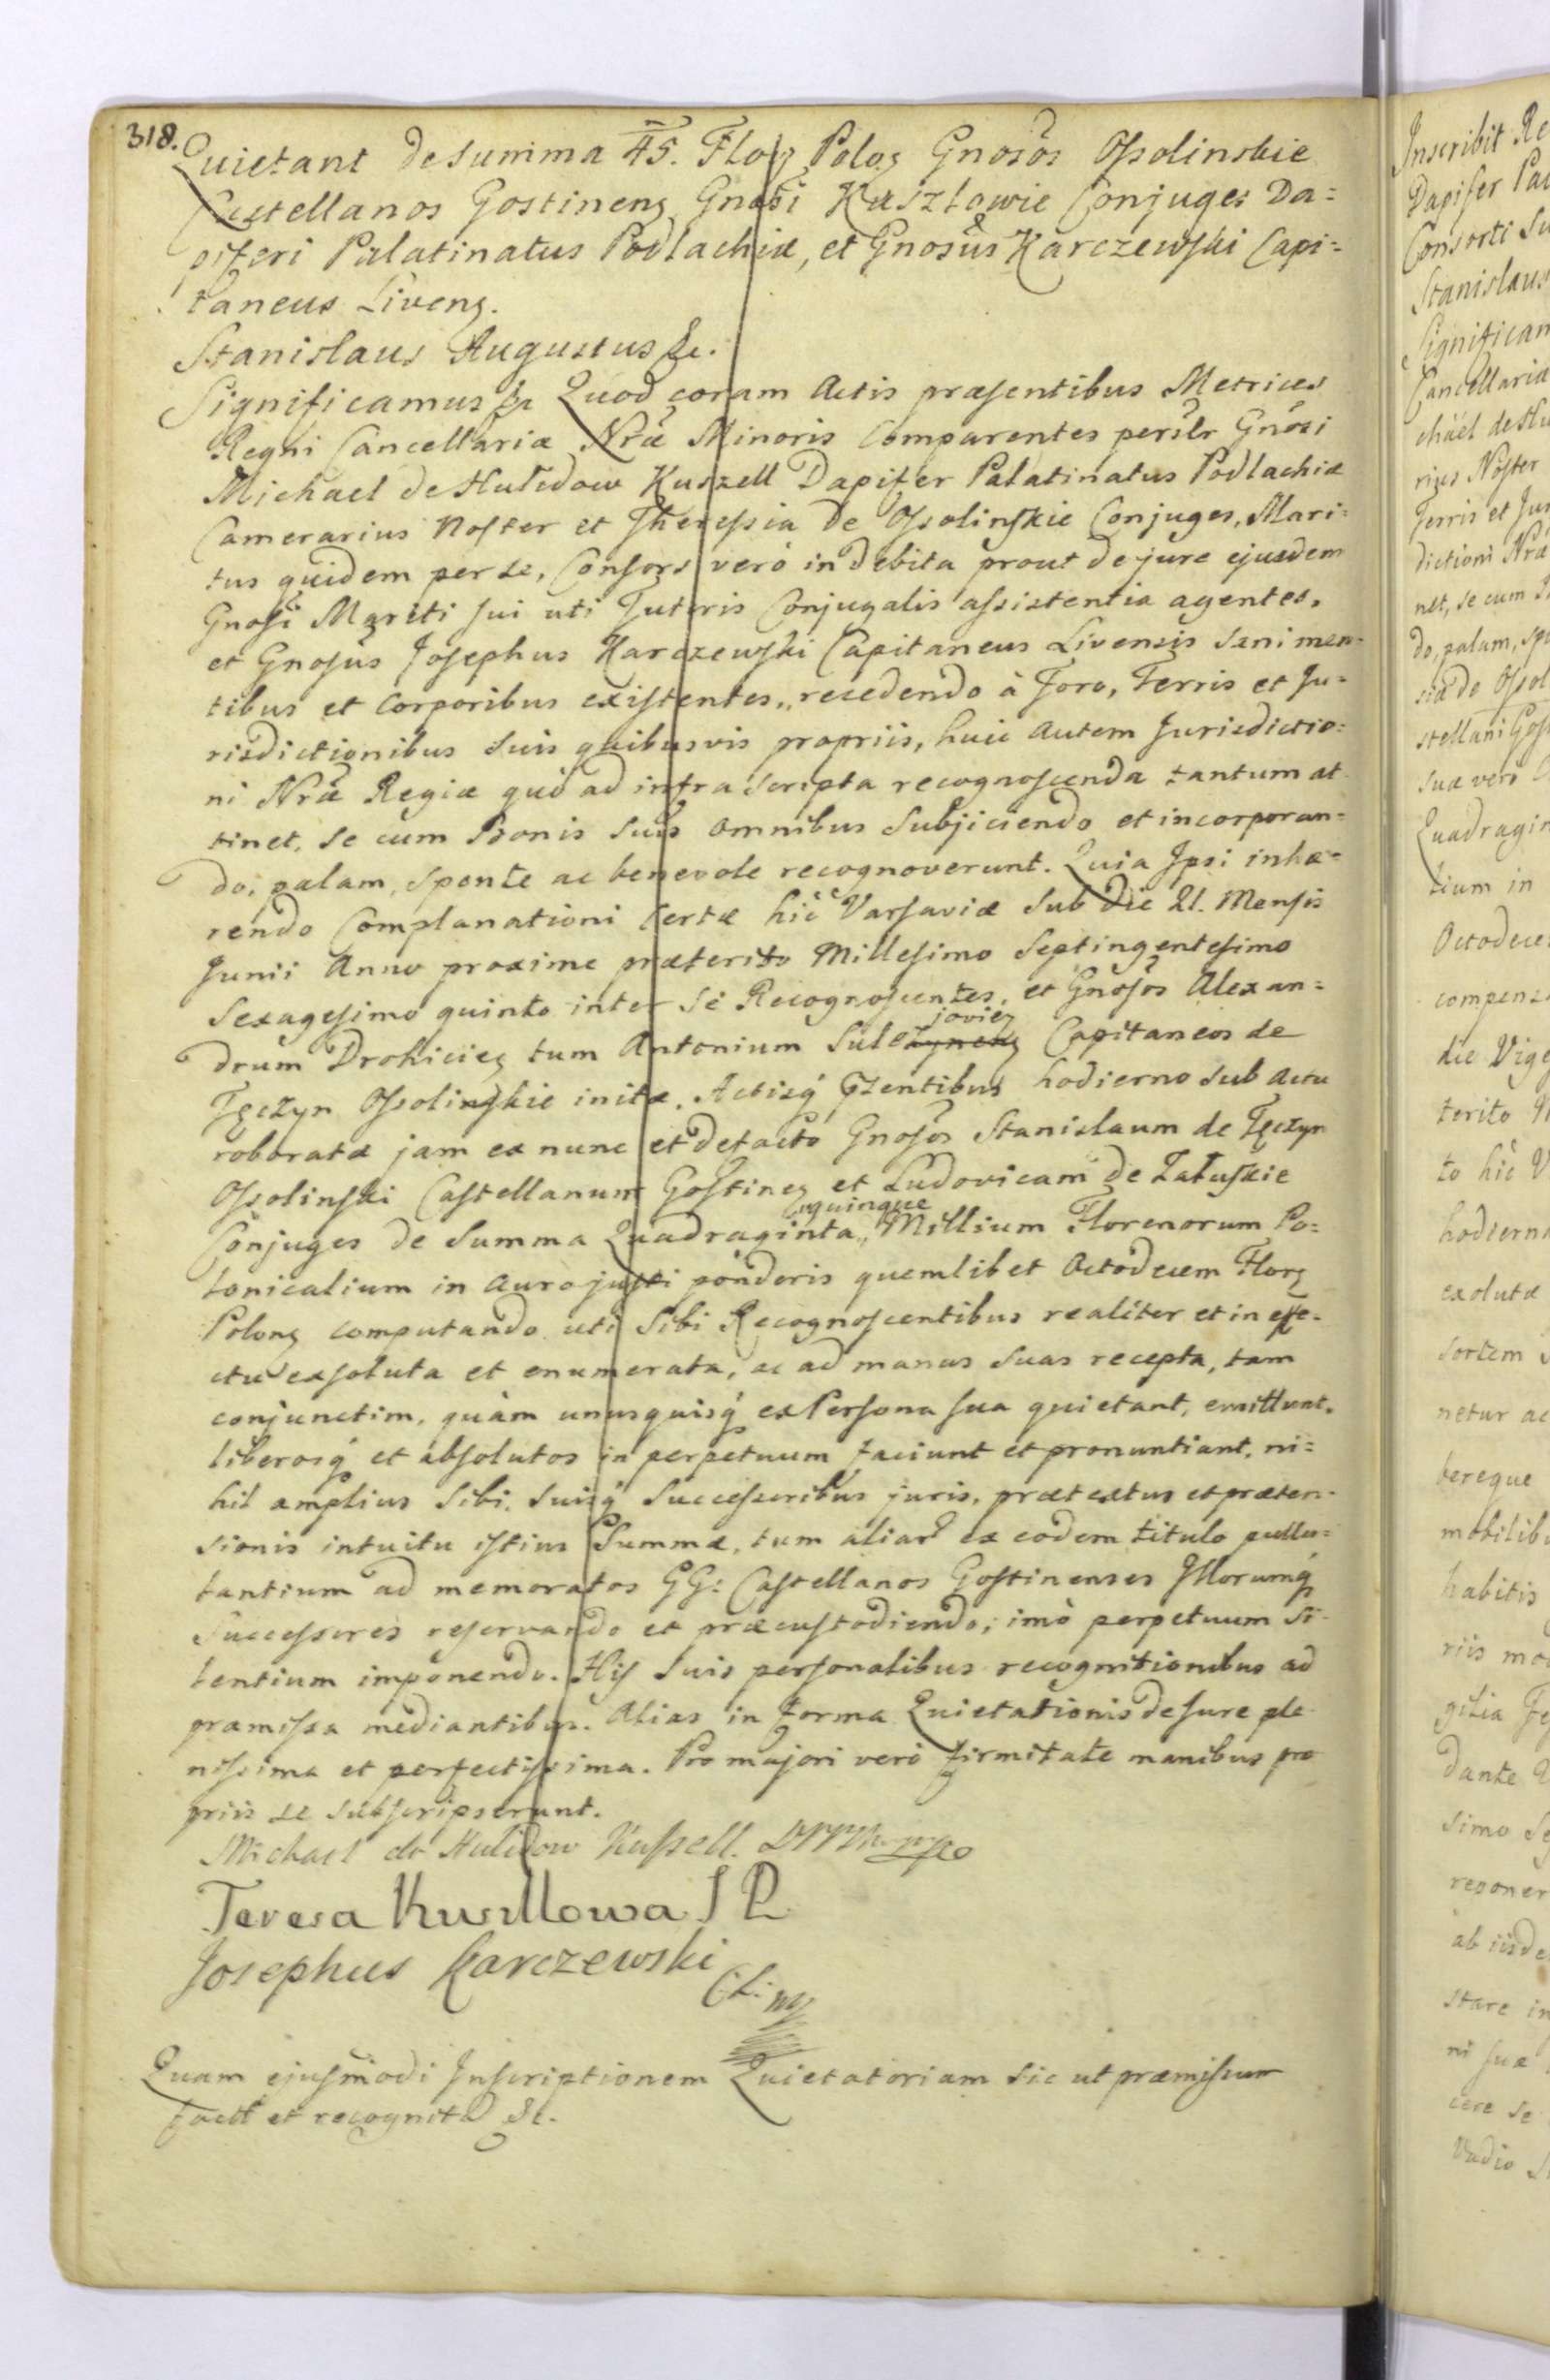 318.
Quietant de summa 45. Floꝝ Poloꝝ Gnosos Ossolinskie
Castellanos Gostinenꝫ Gnosi Kuszlowie Conjuges Da=
piferi Palatinatus Podlachiæ, et Gnosus Karczewski Capi=
taneus Livenꝫ.
Stanislaus Augustus &c.
Significamus &c Quod coram Actis præsentibus Metrices
Regni Cancellariæ Nræ Minoris Comparentes persltr Gnosi
Michael de Hulidow Kuszell Dapifer Palatinatus Podlachiæ
Camerarius Noster et Theressia de Ossolinskie Conjuges, Mari=
tus quidem per se, Consors verò in debita prout de jure ejusdem
Gnosi Mariti sui uti Tutoris Conjugalis assistentia agentes,
et Gnosus Josephus Karczewski Capitaneus Livensis sani men=
tibus et Corporibus existentes, recedendo à Foro, Terris et Ju=
risdictionibus suis quibusvis propriis, huic autem Jurisdictio=
ni Nræ Regiæ quò ad infra scripta recognoscenda tantum at
tinet, se cum Bonis suis omnibus subjiciendo et incorporan=
do, palam, sponte ac benevole recognoverunt. Quia Ipsi inhæ=
rendo Complanationi certæ hic Varsaviæ sub die 21. Mensis
Junii Anno proxime præterito Millesimo Septingentesimo
Sexagesimo quinto inter se Recognoscentes, et Gnosos Alexan=
drum Drohicieꝫ tum Antonium Sulejovieꝫ Capitaneos de
Tęczyn Ossolinskie initæ, Actisq́ pzentibus hodierno sub actu
roboratæ jam ex nunc et defacto Gnosos Stanislaum de Tęczyn
Ossolinski Castellanum Gostineꝫ et Ludovicam de Załuskie
Conjuges de Summa Quadraginta quinque Millium Florenorum Po=
lonicalium in auro justi ponderis quemlibet Octodecem Florꝫ
Polonꝫ computando uti sibi Recognoscentibus realiter et in effe=
ctu exsoluta et enumerata, ac ad manus suas recepta, tam
conjunctim, quàm unusquisq́ ex Persona sua quietant, emittunt,
liberosq́ et absolutos in perpetuum faciunt et pronuntiant, ni=
hil amplius sibi, suisq́ Successoribus juris, prætextus et præten=
sionis intuitu istius Summæ, tum aliar ex eodem titulo pullu=
lantium ad memoratos GG: Castellanos Gostinenses Illorumq́
Successores reservando et præcustodiendo; imò perpetuum si=
lentium imponendo. His suis personalibus recognitionibus ad
præmissa mediantibus. Alias in forma Quietationis de Jure ple
nissima et perfectissima. Pro majori verò firmitate manibus pro
priis se subscripserunt.
Michael de Hulidow Kuszell.
Teresa Kuszllowa S P
Josephus Karczewski
Quam ejusmodi Inscriptionem Quietatoriam sic ut præmissum
factt et recognita &c.